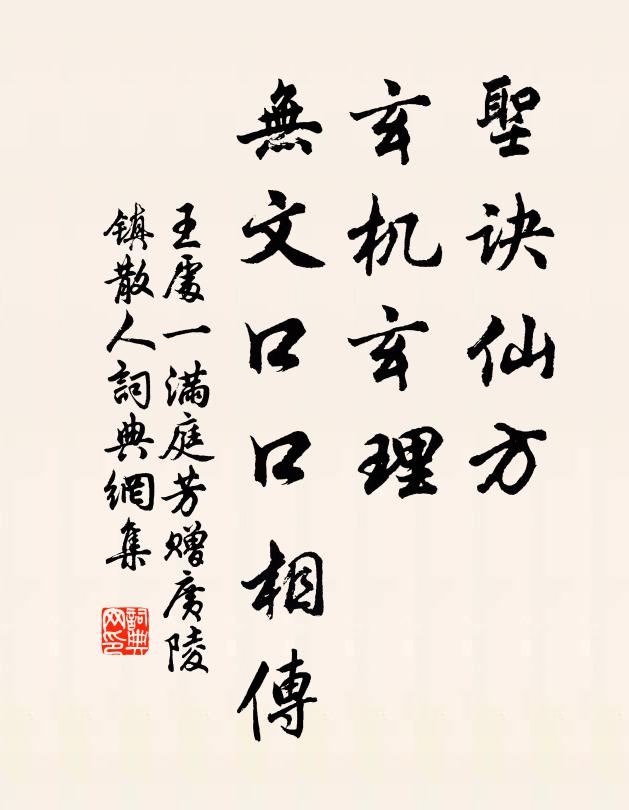 聖訣仙方
玄机玄理
無文口口相傳
王處一滿庭芳赠廣陵
镇散人詞典網集
詞典网印